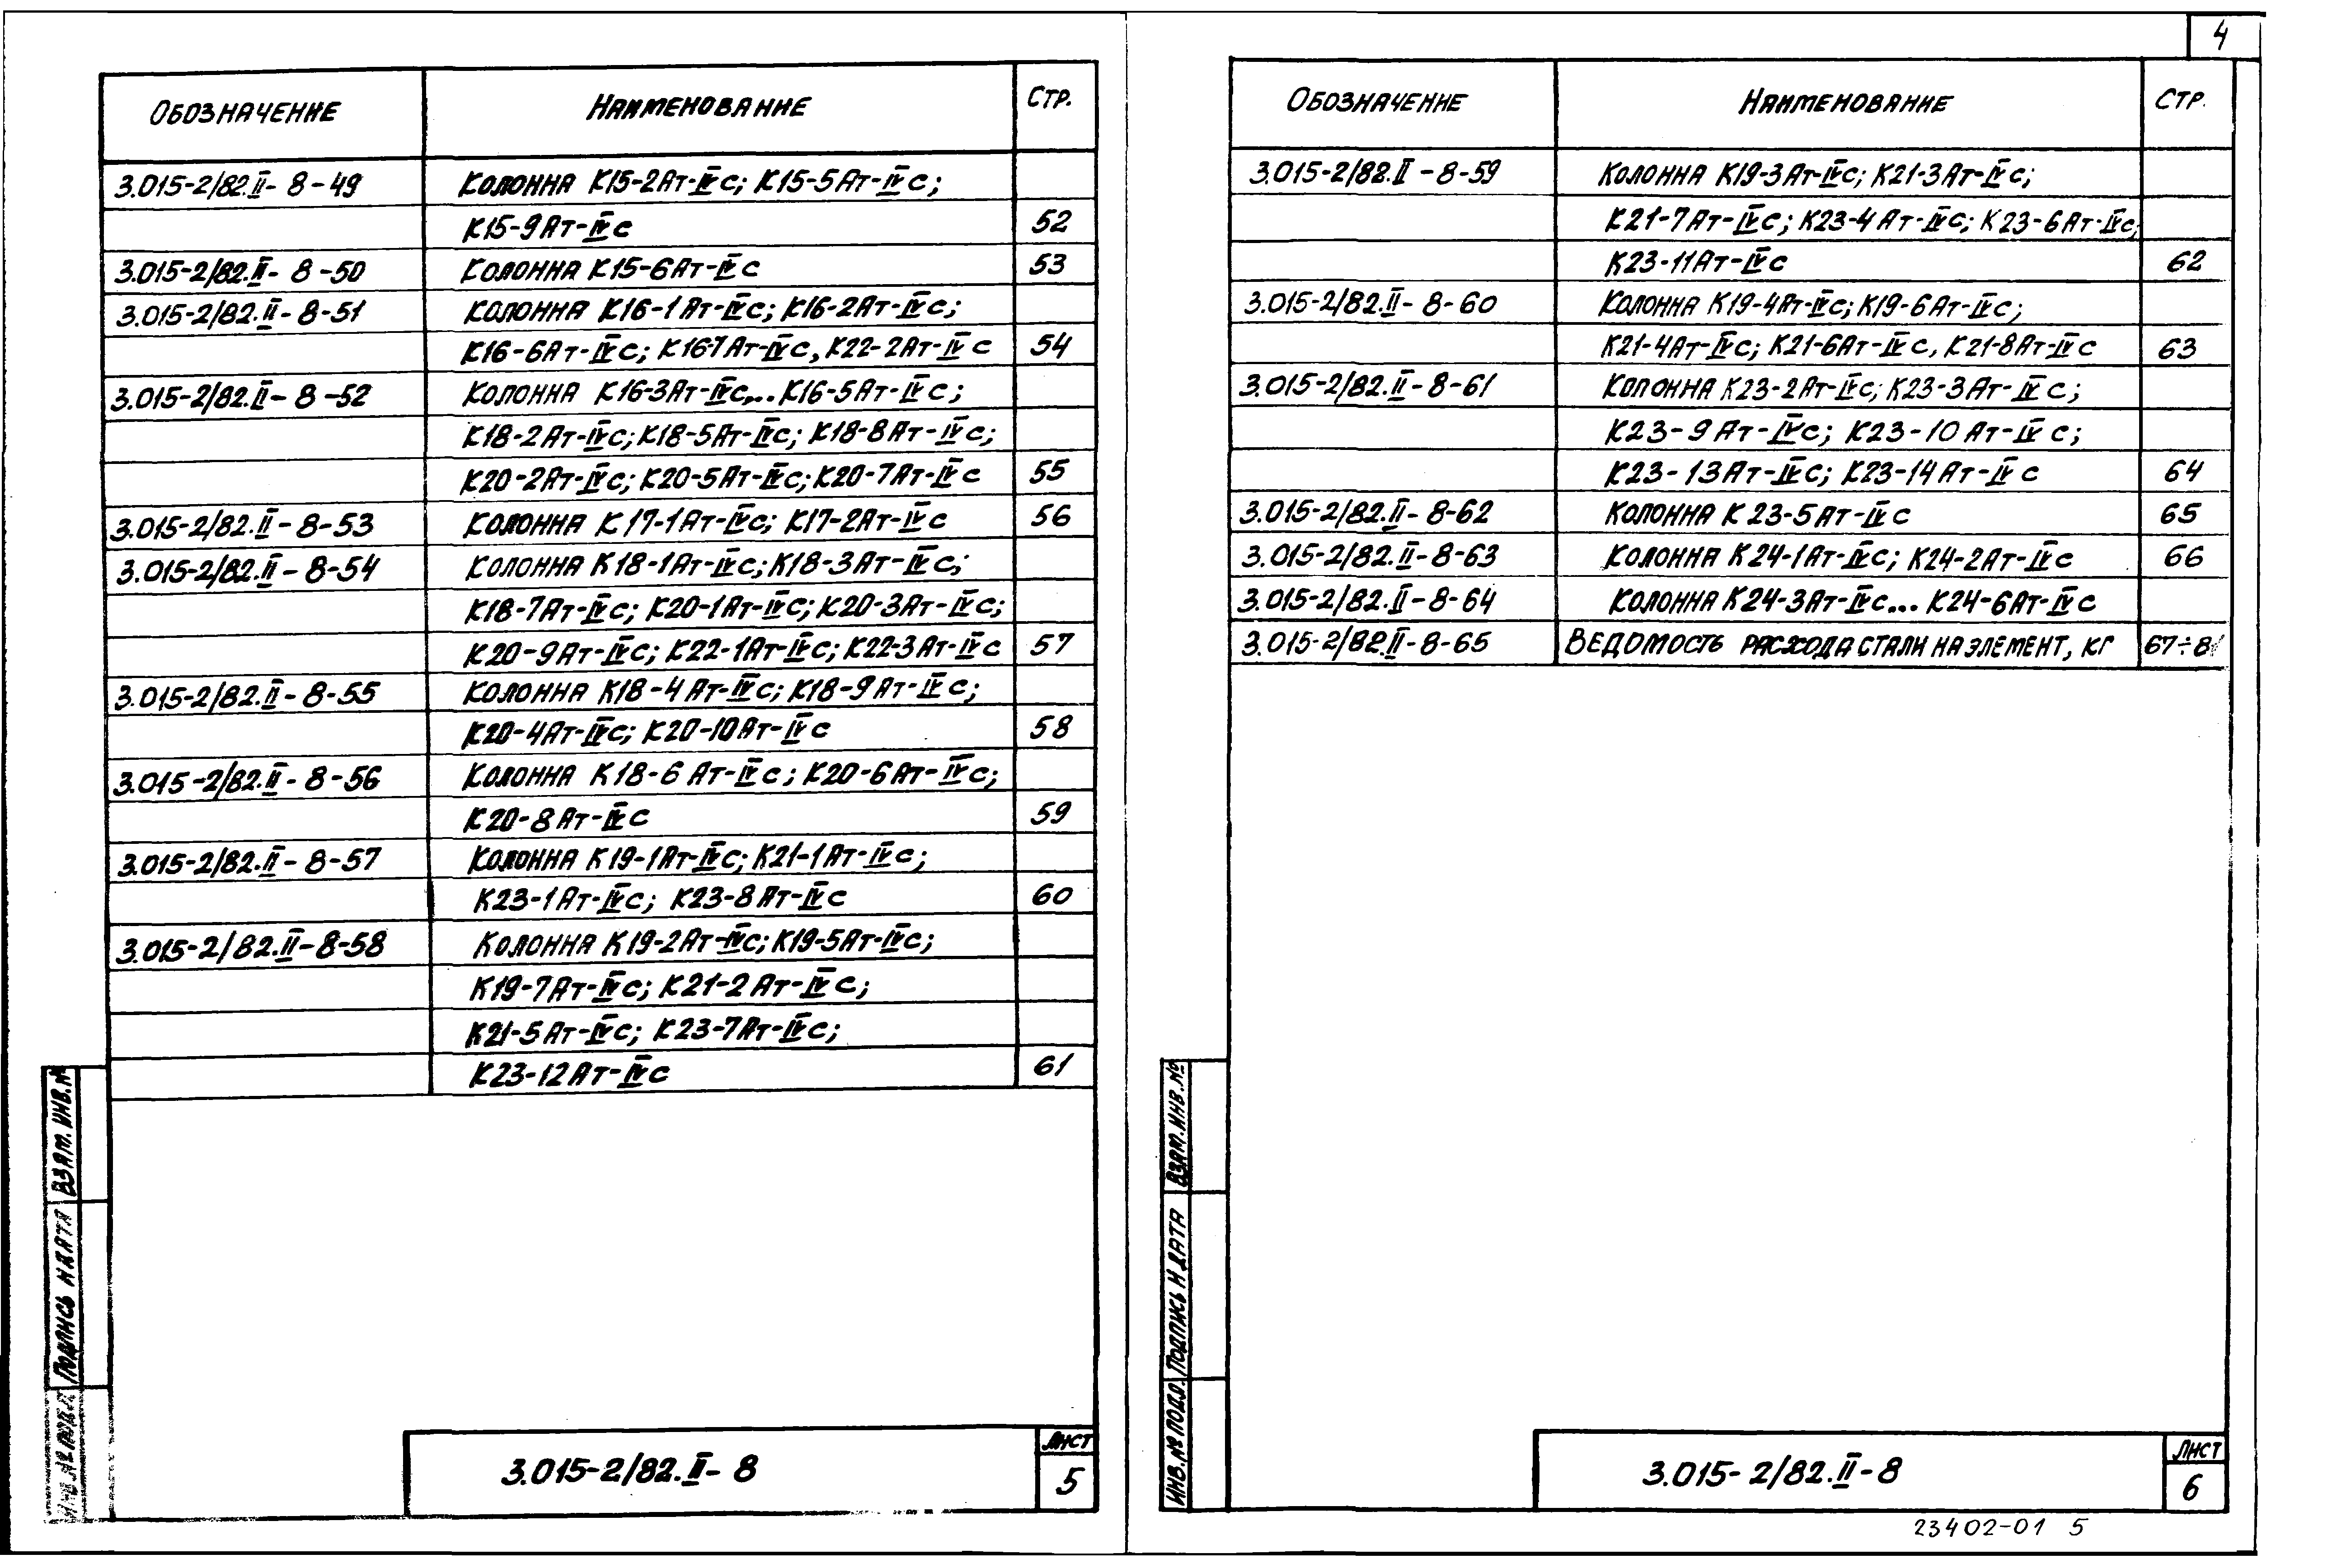 4
ОБОЗНАЧЕНИЕ НАИМЕНОВАНИЕ СТР.
3.015-2/82.II-8-49 КОЛОННА К15-2Ат-IVС; К15-5Ат-IVС;
К15-9Ат-IVС 52
3.015-2/82.II-8-50 КОЛОННА К15-6Ат-IVС 53
3.015-2/82.II-8-51 КОЛОННА К16-1Ат-IVС; К16-2Ат-IVС;
К16-6Ат-IVС; К16-7Ат-IVС, К22-2Ат-IVС 54
3.015-2/82.II-8-52 КОЛОННА К16-3Ат-IVС... К16-5Ат-IVС;
К18-2Ат-IVС; К18-5Ат-IVС; К18-8Ат-IVС;
К20-2Ат-IVС; К20-5Ат-IVС; К20-7Ат-IVС 55
3.015-2/82.II-8-53 КОЛОННА К17-1Ат-IVС; К17-2Ат-IVС 56
3.015-2/82.II-8-54 КОЛОННА К18-1Ат-IVС; К18-3Ат-IVС;
К18-7Ат-IVС; К20-1Ат-IVС; К20-3Ат-IVС;
К20-9Ат-IVС; К22-1Ат-IVС; К22-3Ат-IVС 57
3.015-2/82.II-8-55 КОЛОННА К18-4Ат-IVС; К18-9Ат-IVС;
К20-4Ат-IVС; К20-10Ат-IVС 58
3.015-2/82.II-8-56 КОЛОННА К18-6Ат-IVС; К20-6Ат-IVС;
К20-8Ат-IVС 59
3.015-2/82.II-8-57 КОЛОННА К19-1Ат-IVС; К21-1Ат-IVС;
К23-1Ат-IVС; К23-8Ат-IVС 60
3.015-2/82.II-8-58 КОЛОННА К19-2Ат-IVС; К19-5Ат-IVС;
К19-7Ат-IVС; К21-2Ат-IVС;
К21-5Ат-IVС; К23-7Ат-IVС;
К23-12Ат-IVС 61
ВЗАМ. ИНВ. №
ПОДПИСЬ И ДАТА
ИНВ. № ПОДЛ.
3.015-2/82.II-8
ЛИСТ
5
ОБОЗНАЧЕНИЕ НАИМЕНОВАНИЕ СТР.
3.015-2/82.II-8-59 КОЛОННА К19-3Ат-IVС; К21-3Ат-IVС;
К21-7Ат-IVС; К23-4Ат-IVС; К23-6Ат-IVС;
К23-11Ат-IVС 62
3.015-2/82.II-8-60 КОЛОННА К19-4Ат-IVС; К19-6Ат-IVС;
К21-4Ат-IVС; К21-6Ат-IVС, К21-8Ат-IVС 63
3.015-2/82.II-8-61 КОЛОННА К23-2Ат-IVС; К23-3Ат-IVС;
К23-9Ат-IVС; К23-10Ат-IVС;
К23-13Ат-IVС; К23-14Ат-IVС 64
3.015-2/82.II-8-62 КОЛОННА К23-5Ат-IVС 65
3.015-2/82.II-8-63 КОЛОННА К24-1Ат-IVС; К24-2Ат-IVС 66
3.015-2/82.II-8-64 КОЛОННА К24-3Ат-IVС... К24-6Ат-IVС
3.015-2/82.II-8-65 ВЕДОМОСТЬ РАСХОДА СТАЛИ НА ЭЛЕМЕНТ, КГ 67÷81
ВЗАМ. ИНВ. №
ПОДПИСЬ И ДАТА
ИНВ. № ПОДЛ.
3.015-2/82.II-8
ЛИСТ
6
23402-01 5